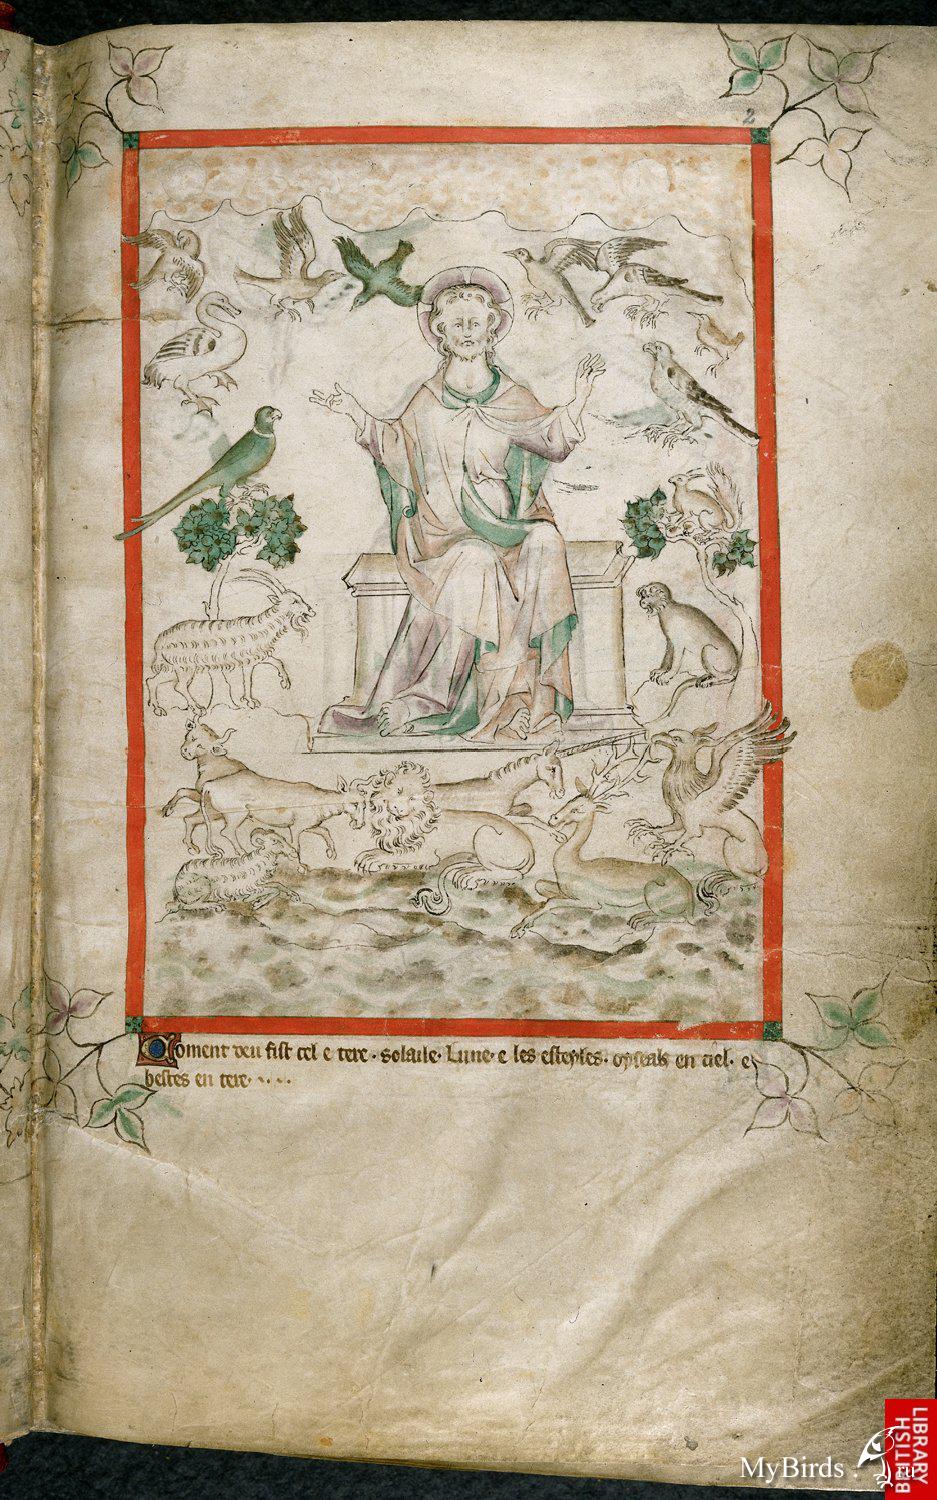 2
Coment deu fist cel e tere · solaile · Lune · e les esteyles · oyseals en ciel · e
bestes en tere · · · ·
BRITISH
LIBRARY
MyBirds.ru